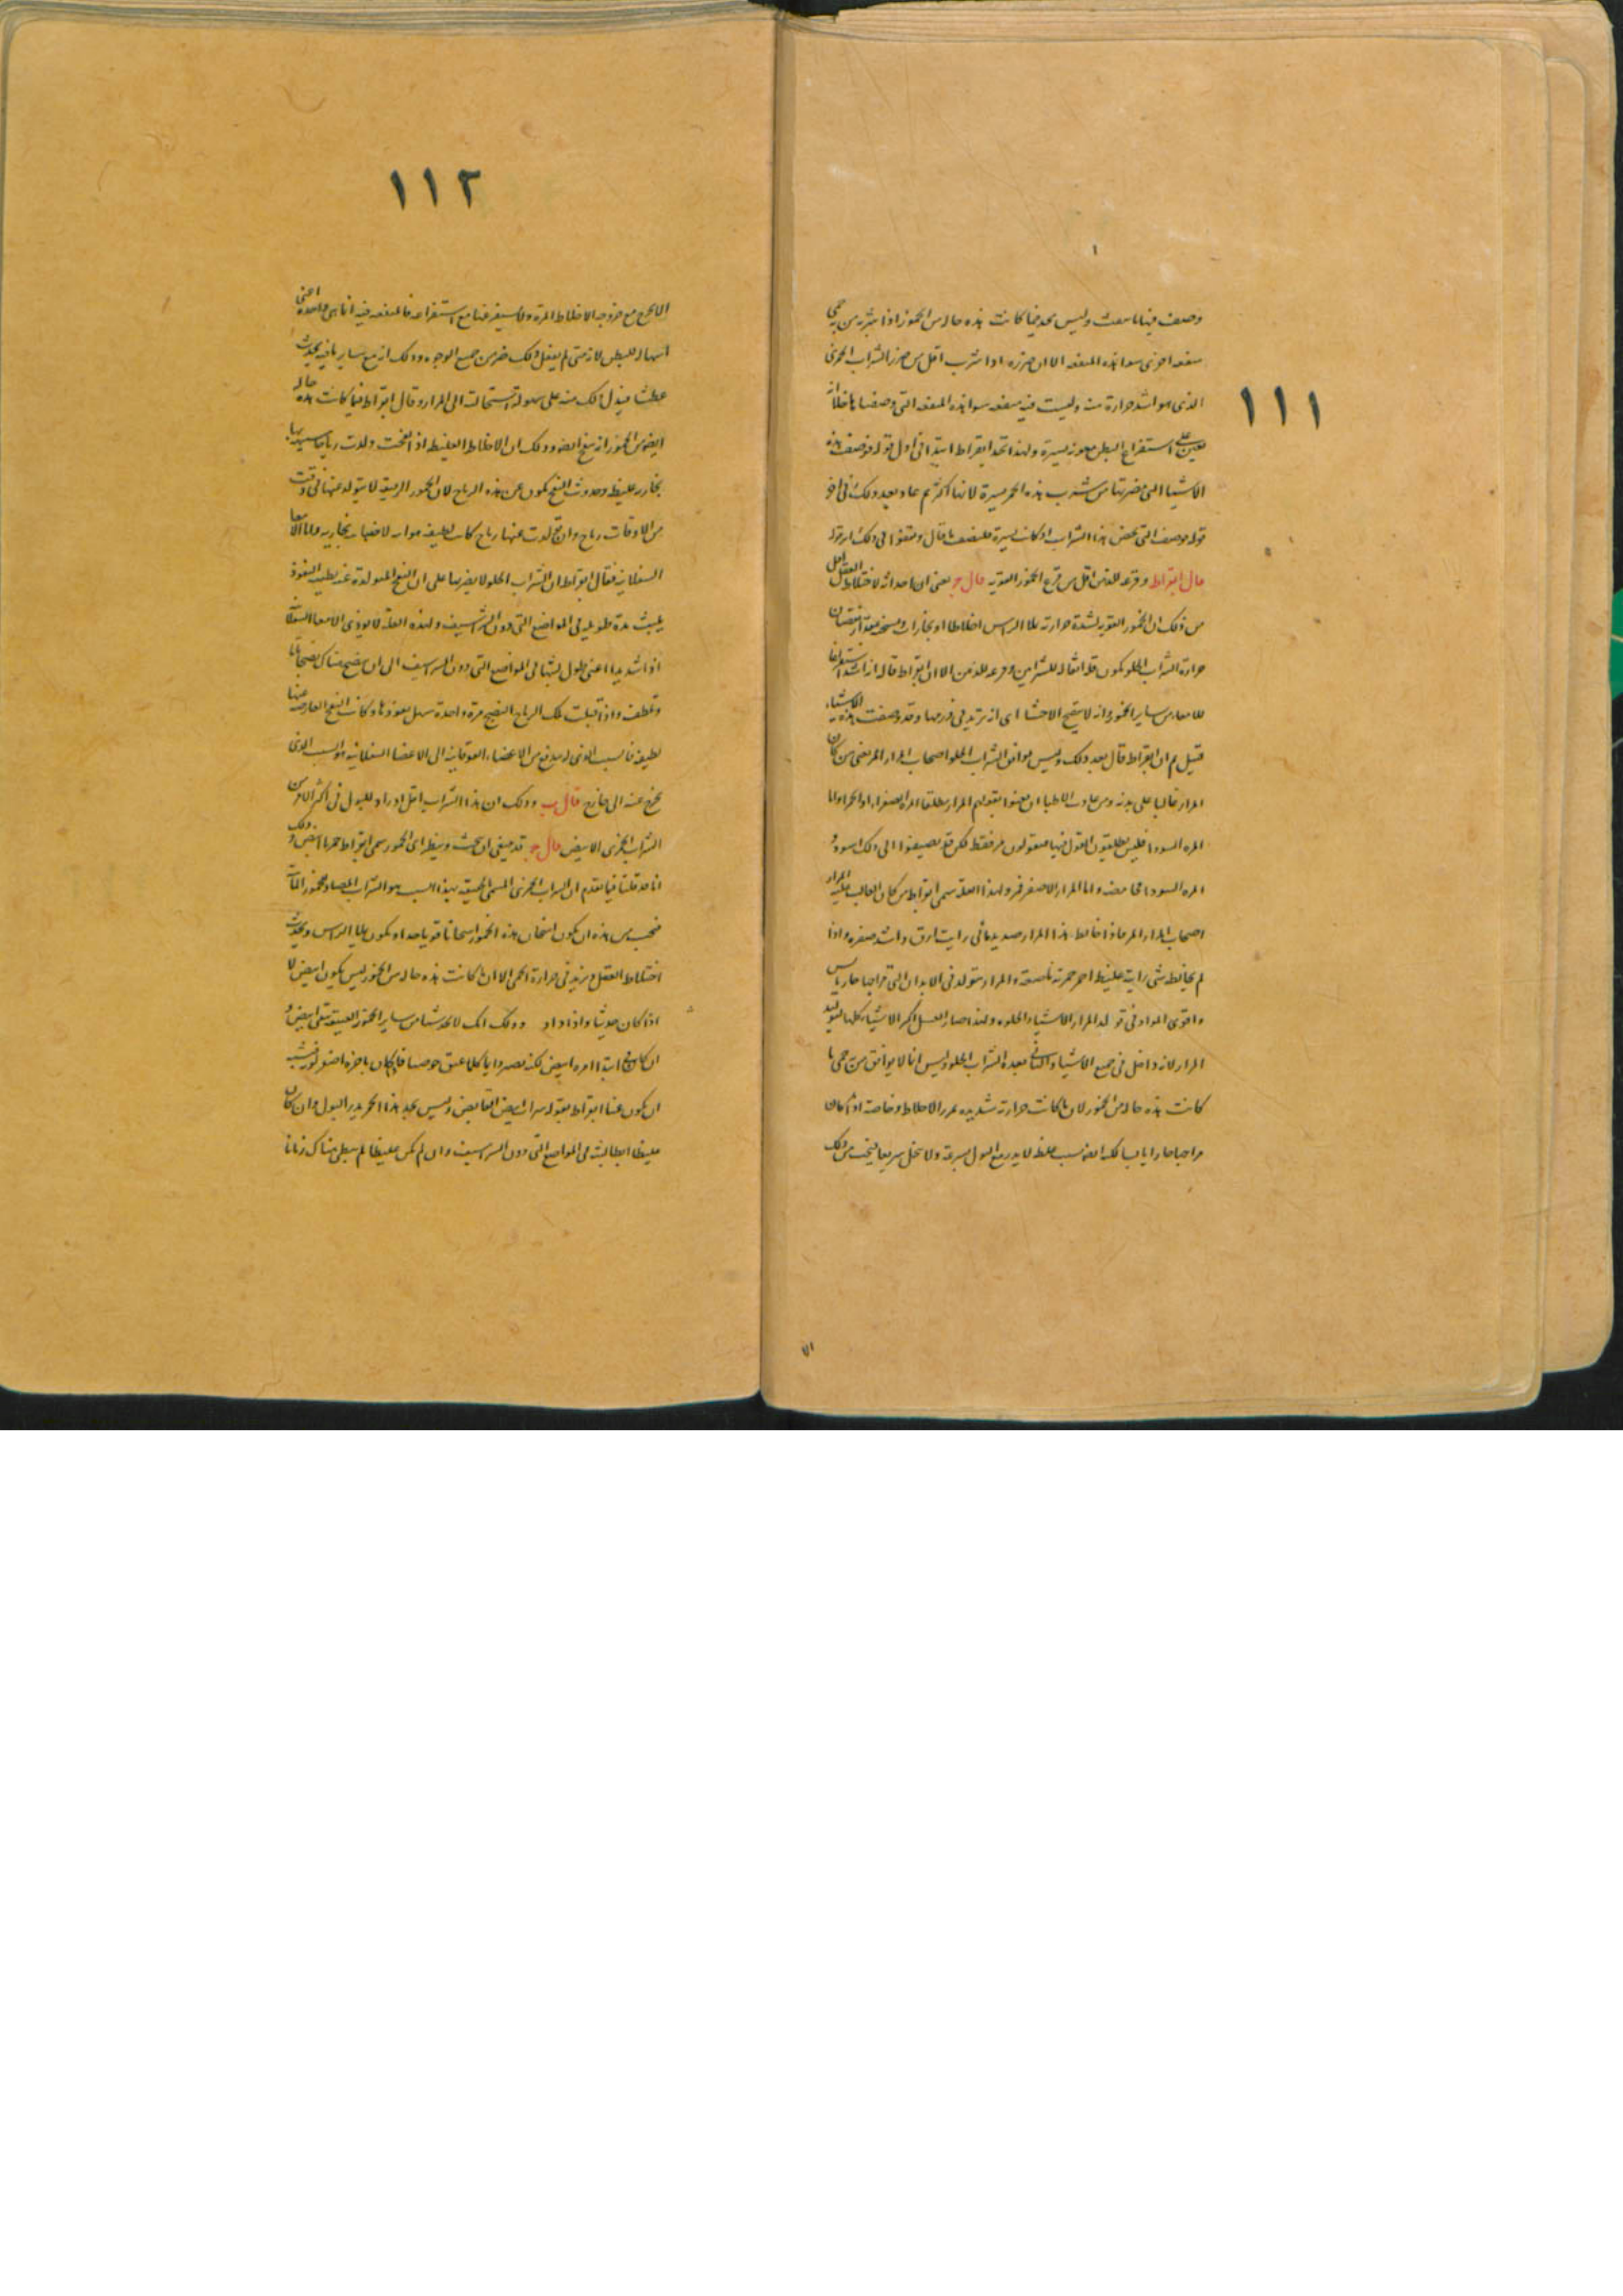 ١١١
وصف فيها ما سعت وليس يجد فيما كانت هذه حاله من الخمور اذا شربه من به حمى
منفعه اخرى سوا هذه المنفعه الا ان ضرره اذا شرب اقل من ضرر الشراب الخمرى
الذى هو اشد حرارة منه وليست فيه منفعه سوا هذه المنفعه التى وصفنا ما خلا انه
يعين على استفراغ البطن معونه يسيرة ولهذا نجد ابقراط ابتدا فى اول قوله فوصف هذه
الاشيا التى مضرتها من شرب هذه الخمر يسيرة لانها اكثر ثم عاد بعد ذلك فى اخر
قوله فوصف التى تخص هذا الشراب اذ كانت يسيرة فلنصف ما قال ونقفوا فى ذلك اثر قوله
قال ابقراط وقرعه للذهن اقل من قرع الخمور القويه قال ج يعنى ان احداثه لاختلاط العقل اقل
من ذلك ان الخمور القويه لشدة حرارته يملا الراس اخلاطا او بخارات ويسخنه بمقدار نقصان
حرارة الشراب الحلو يكون قلة اثقاله للشراين وقرعه للذهن الا ان ابقراط قال انه اشد استفراغا
للامعا من ساير الخمور وانه لا ينفخ الاحشا اى انه يزيد فى ورمها وقد وصفت هذه الاشياء
قبل ثم ان ابقراط قال بعد ذلك وليس يوافق الشراب الحلو اصحاب المرار المر يعنى من كان
المرار غالبا على بدنه ومن عادت الاطبا ان يعنوا بقولهم المرار مطلقا المرة الصفراء او الحمراء واما
المره السودا فليس يطلقون القول فيها فيقولون مر فقط لكن قد يضيفوا الى ذلك اسود و
المره السودا حامضه واما المرار الاصفر فمر ولهذا العله سمى ابقراط من كان الغالب عليه المرار
اصحاب المرار المر فاذا خالط هذا المرار صديد مائى رايت ارق واشد صفره واذا
لم يخالطه شى رايته غليظ احمر حمرته ناصعه والمرار يتولد فى الابدان التى مزاجها حار يابس
واقوى المواد فى تولد المرار الاشياء الحلوه ولهذا صار العسل اكثر الاشياء كلها لتوليد
المرار لانه داخل فى جميع الاشيا والثانى بعده الشراب الحلو وليس انما لا يوافق من حمى ما
كانت هذه حاله من الخمور لان ما كانت حرارته شديده يمرر الاخلاط وخاصة اذا كان
مزاجها حارا يابسا لكنه ايضا بسبب غلظه لا يدر مع البول بسرعة ولا ينحل سريعا فيجب من ذلك
الا
١١٢
الا يخرج مع خروجه الاخلاط المرة ولا يستفرغها مع استفراغه فالمنفعه فيه انما هى واحدة اعنى
اسهاله للبطن لانه متى لم يفعل ذلك ضر من جميع الوجوه وذلك انه مع ساير ما فيه يحدث
عطشا فيدل ذلك منه على سهولة استحالته الى المرار وقال ابقراط فيما كانت هذه حاله
ايضا من الخمور انه ينفخ ايضا وذلك ان الاخلاط الغليظ اذا سخنت ولدت رياحا بسبب ما
بخاريه غليظه وحدوث النفخ يكون عن هذه الرياح لان الخمور الرقيقه لا يتولد عنها فى وقت
من الاوقات رياح وان تولدت عنها رياح كانت لطيفه هوائيه لا ضبابيه بخاريه واما الامعا
السفلانيه فقال ابقراط ان الشراب الحلو لا يضر بها على ان النفخ المتولدة عنه بطيئة النفوذ
يلبث مدة طويله فى المواضع التى دون الشراسيف ولهذه العله لا يوذى الامعا السفلا
اذا شديدا اعنى طول لبثها فى المواضع التى دون الشراسيف الى ان ينضج هناك نضجا تاما
وتلطف واذا قبلت تلك الرياح النضج مرة واحدة سهل نفوذها وكانت النفخ العارضه عنها
لطيفه فالسبب الذى له يدفع من الاعضاء الفوقانيه الى الاعضا السفلانيه هو السبب الذى
يخرج عنه الى خارج قال ب وذلك ان هذا الشراب اقل ادرارا للبول فى اكثر الامر من
الشراب الخمرى الابيض قال ج قد ينبغى ان نبحث وننظر اى الخمور سمى ابقراط خمرا ابيض وذلك
انا قد قلنا فيما تقدم ان الشراب الخمرى المسمى الحقيقه بهذا السبب هو الشراب المضاد لخمور المائيه
فيجب من هذه ان يكون اسخان هذه الخمور اسخانا قويا جدا ويكون يملا الراس ويحدث
اختلاط العقل ويزيد فى حرارة الحمى الا ان ما كانت هذه حاله من الخمور ليس يكون ابيض لا
اذا كان حديثا واذا داد وذلك انك لا تجد شيا من ساير الخمور العتيقه يبقى ابيض و
ان كان فى ابتدا امره ابيض لكنه يصير دايما كلما عتق خوصيا فان كان باخره اصفر فيشبه
ان يكون عنا ابقراط بقوله شراب ابيض القابض وليس يجد هذا الخمر يدر البول وان كان
غليظا ابطا لبثه فى المواضع التى دون الشراسيف وان لم يكن غليظا لم يبطى هناك زمانا